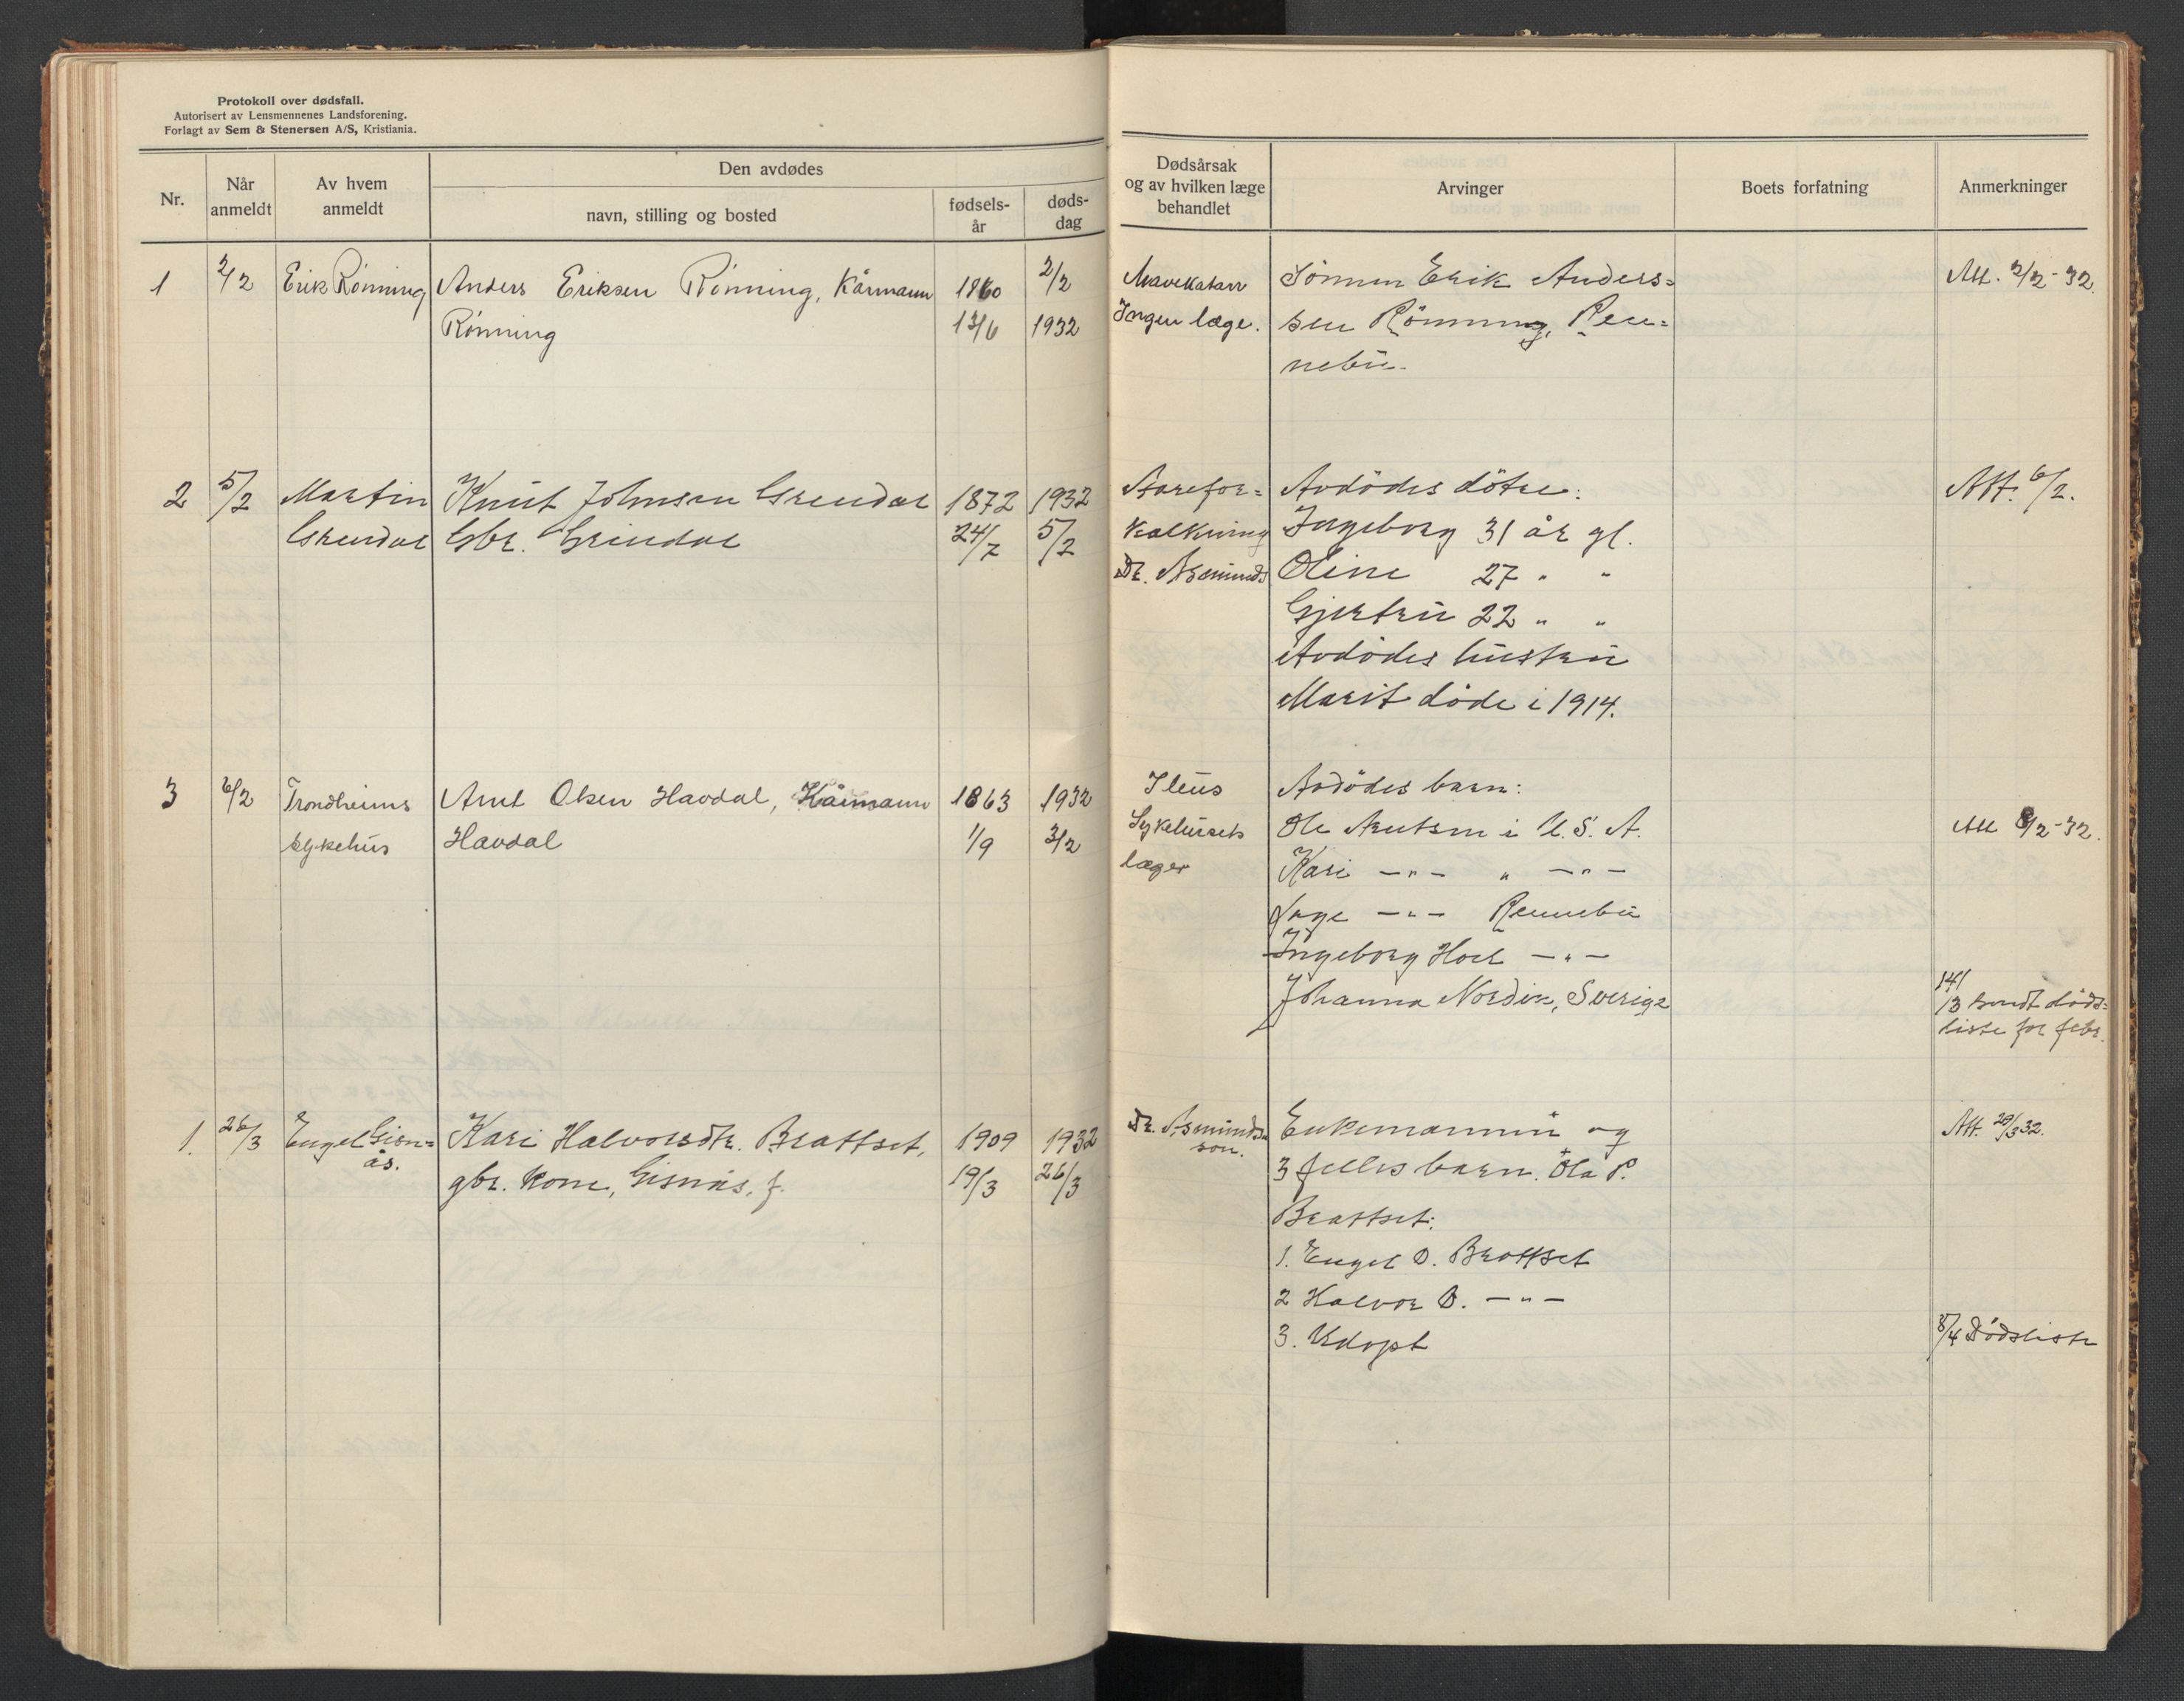 Protokoll over dødsfall.
Autorisert av Lensmennenes Landsforening.
Forlagt av Sem & Stenersen A/S, Kristiania.
Nr.
Når anmeldt
Av hvem anmeldt
Den avdødes
navn, stilling og bosted
fødsels-år
døds-dag
Dødsårsak og av hvilken læge behandlet
Arvinger
Boets forfatning
Anmerkninger
1 2/2 Erik Rønning Anders Eriksen Rønning, Kårmann 1860 2/2 Mavekatarr Sönnen Erik Anders= Att. 2/2-32.
Rønning 13/6 1932 Ingen læge. sen Rönning, Ren=
nebu.
2 5/2 Martin Knut Johnsen Grendal 1872 1932 Aarefor= Avdödes dötre: Att. 6/2.
Grendal Gbr. Grindal 24/7 5/2 kalkning Ingeborg 31 år gl.
Dr. Asmunds Oline 27 " "
Gjertru 22 " "
Avdödes hustru
Marit döde i 1914.
3 6/2 Trondheims Arnt Olsen Havdal, Kårmann 1863 1932 Ileus Avdödes barn:
sykehus Havdal 1/9 3/2 Sykehusets Ole Arntsen i U.S.A. Att 8/2-32.
læger Kari -"- " -"-
Inge -"- Rennebu
Ingeborg Hoel -"-
Johanna Nordin, Sverige
14/3 sendt döds=
liste for febr.
1. 26/3 Engel Gisn= Kari Halvorsdtr. Brattset, 1909 1932 Dr. Asmunds= Enkemannen og Att. 29/3 32.
ås. gbr. kone, Gisnås, f. 19/3 26/3 son. 3 felles barn. Ola P.
Brattset:
1. Engel O. Brattset
2 Halvor O. -"-
3. Udøpt 8/4 Dödsliste